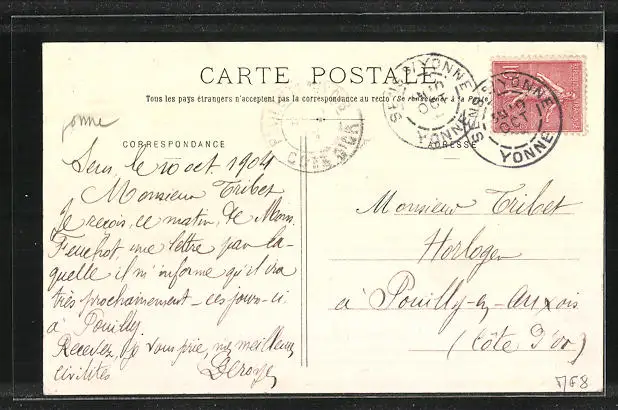 CARTE POSTALE
Tous les pays étrangers n'acceptent pas la correspondance au recto (Se renseigner à la Poste)
yonne
CORRESPONDANCE
Sens le 10 oct. 1904
Monsieur Tribet
Je reçois, ce matin, de Mons.
Feuchot, une lettre par la-
quelle il m'informe qu'il ira
très prochainement – ces jours-ci
à Pouilly.
Recevez, je vous prie, mes meilleures
civilités
ADRESSE
Monsieur Tribet
Horloger
à Pouilly-en-Auxois
(Côte d'Or)
SENS S/YONNE
YONNE
SENS S/YONNE
YONNE
COTE D'OR
10